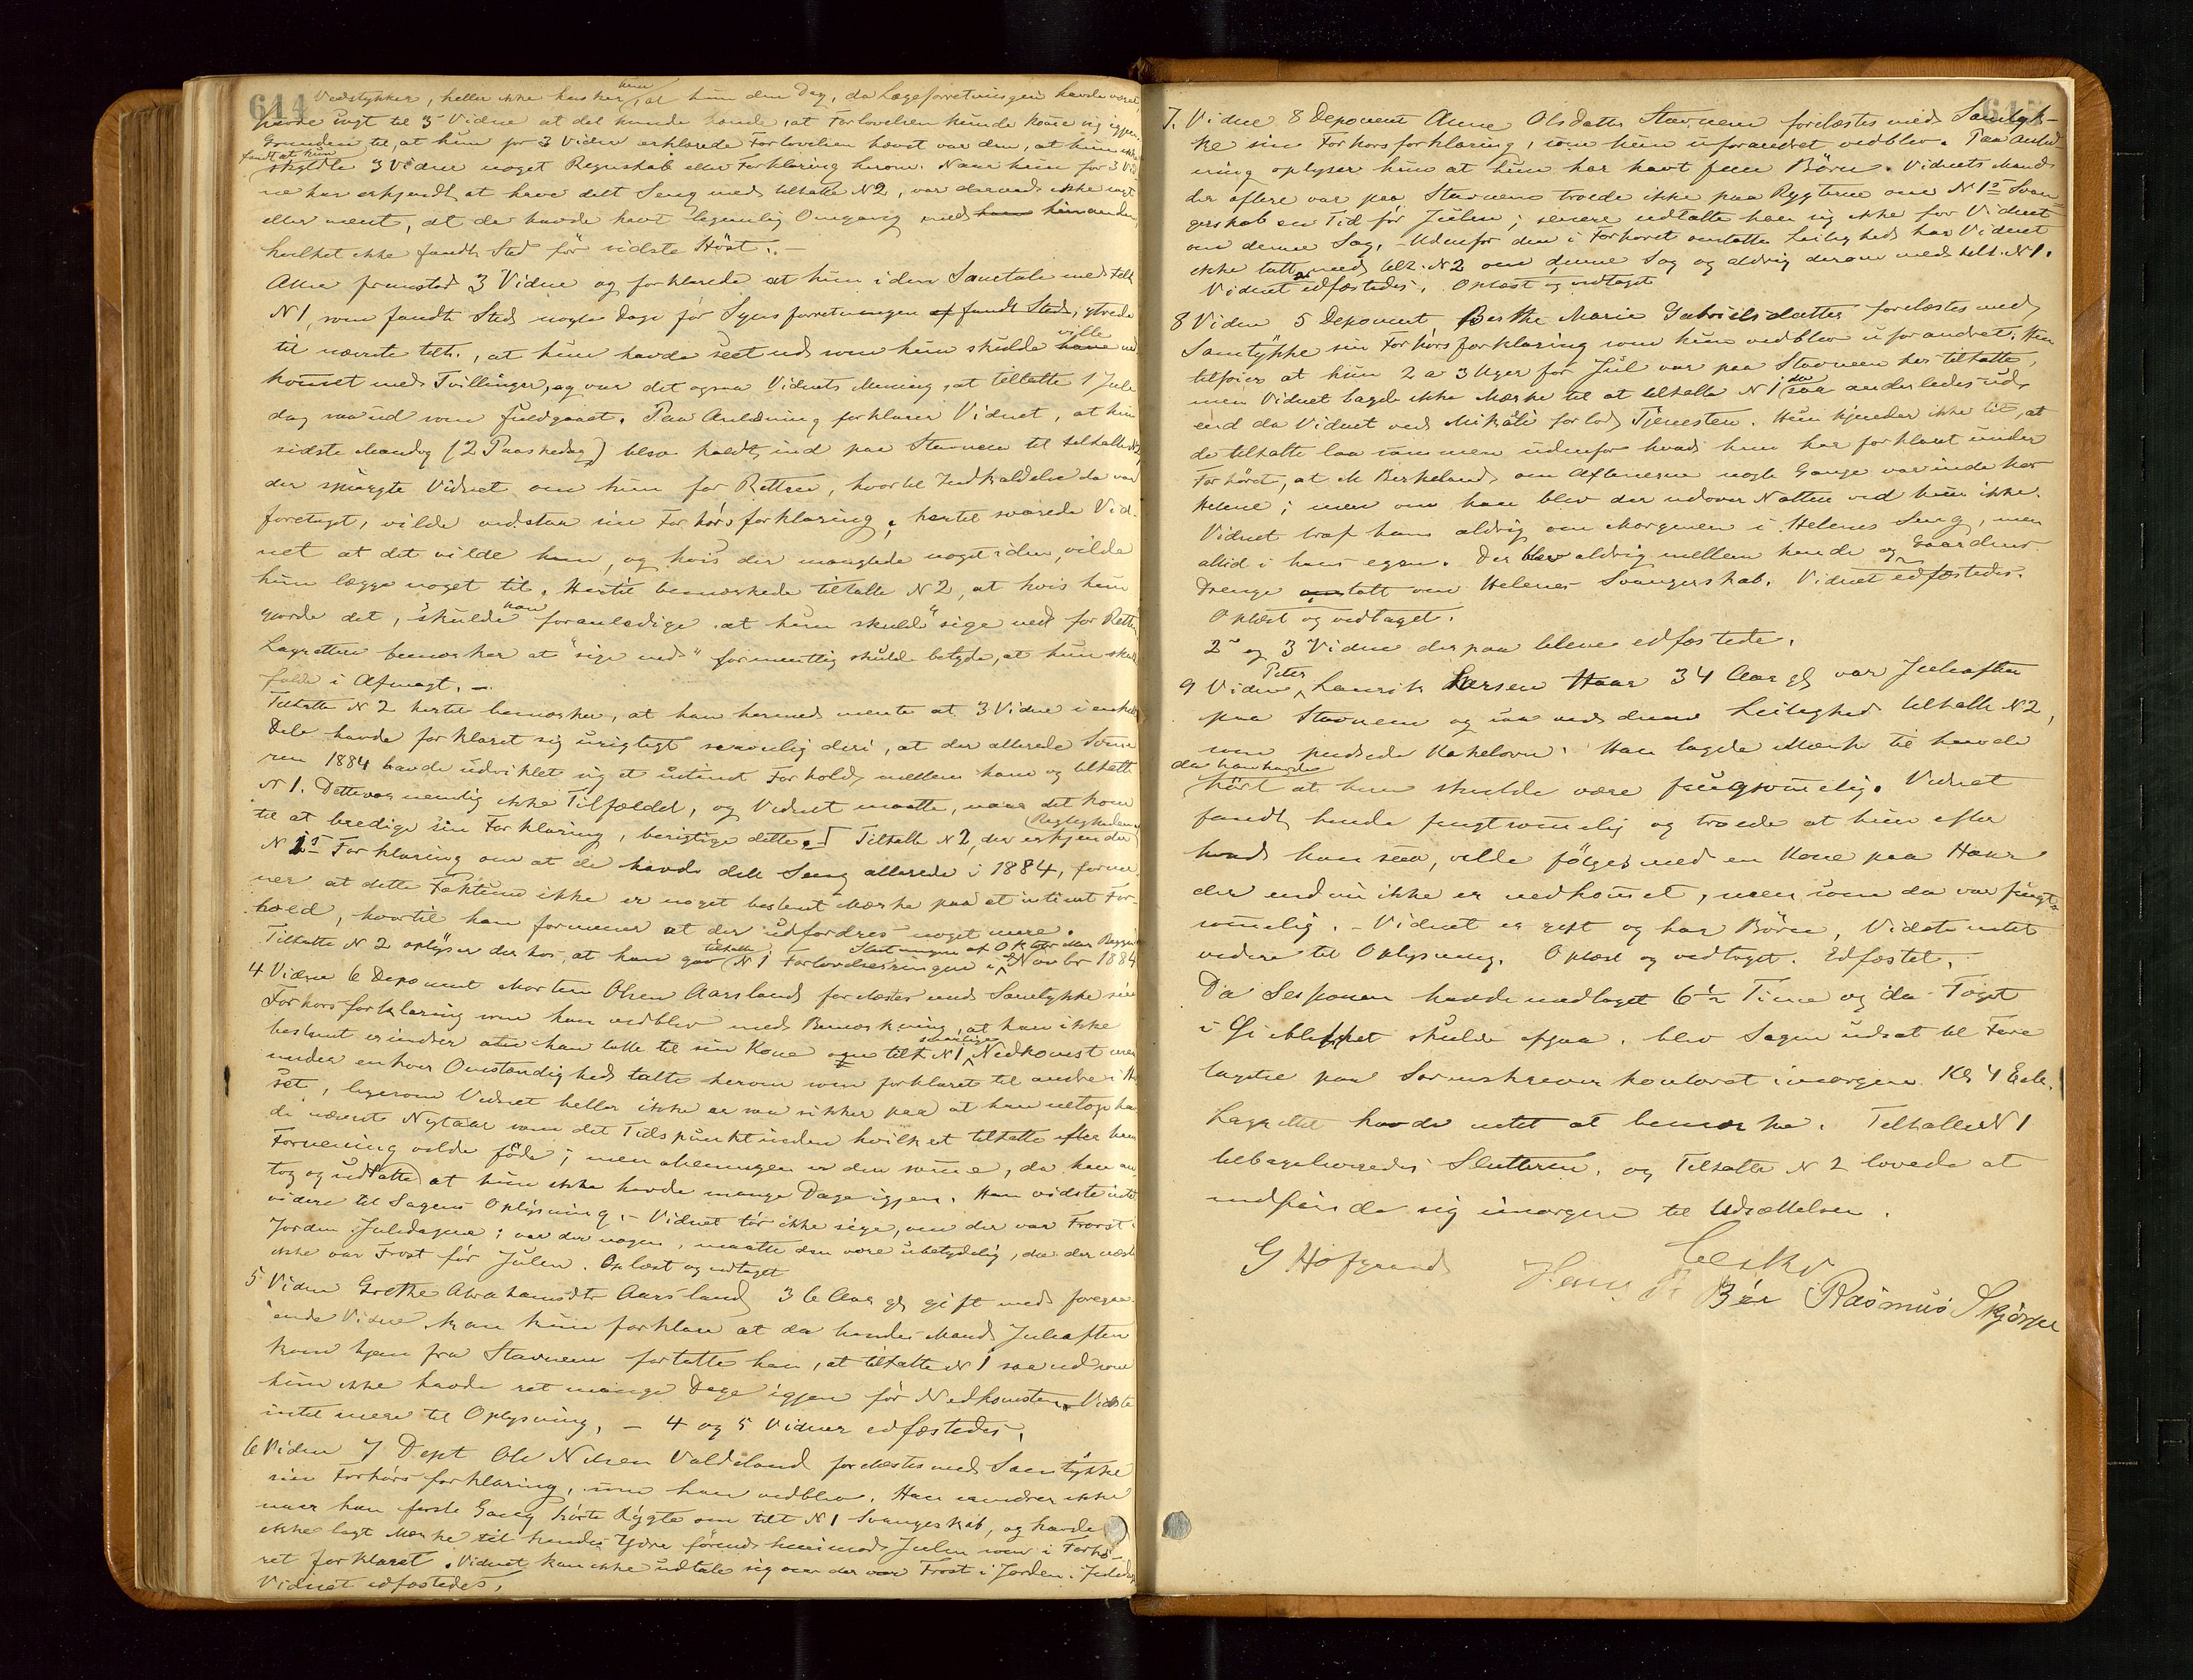 644
Vedstykker, heller ikke husker hun, at hun den Dag, da Lægeforretningen havde været,
havde sagt til 3 Vidne at det kunde hænde, at Forlovelsen kunde komme sig igjen.
Grunden til, at hun for 3 Vidne erklærede Forlovelsen hævet var den, at hun ikke
fandt at hun
skyldte 3 Vidne noget Regnskab eller Forklaring herom. Naar hun for 3 Vid
ne har erkjendt at have delt Seng med tiltalte N 2, var dermed ikke sagt
eller ment, at de havde havt legemlig Omgang med hinanden,
hvilket ikke fandt Sted før sidste Høst. –
Atter fremstod 3 Vidne og forklarede at hun i den Samtale med tilt
N 1, som fandt Sted nogle Dage før Synsforretningen af fandt Sted, ytrede
til nævnte tilt., at hun havde seet ud som hun skulde have ville ned
kommet med Tvillinger, og var det ogsaa Vidnets Mening, at tiltalte 1 Jule
dag saa ud som fuldgaaet. Paa Anledning forklarer Vidnet, at hun
sidste Mandag (2 Paaskedag) blev kaldt ind paa Stavnem til tiltalte N 2,
der spurgte Vidnet om hun for Retten, hvortil Indkaldelse da var
foretaget, vilde vedstaa sin Forhørsforklaring; hertil svarede Vid-
net at det vilde hun, og hvis der manglede noget i den, vilde
hun lægge noget til. Hertil bemærkede tiltalte N 2, at hvis hun
gjorde det, skulde han foranledige at hun skulde "sige ned" for Retten.
Lagretten bemærker at "sige ned" formentlig skulde betyde, at hun skulde
falde i Afmagt. –
Tiltalte N 2 hertil bemærker, at han hermed mente at 3 Vidne i enkelte
Dele havde forklaret sig urigtigt navnlig deri, at der allerede Somme
ren 1884 havde udviklet sig et intimt Forhold mellem ham og tiltalte
N 1. Dette var nemlig ikke Tilfældet, og Vidnet maatte, naar det kom
til at beedige sin Forklaring, berigtige dette. Tiltalte N 2, der erkjender Rigtigheden af
N 1s Forklaring om at de havde delt Seng allerede i 1884, forme
ner at dette Faktum ikke er noget bestemt Mærke paa et intimt For-
hold, hvortil han formener at der udfordres noget mere.
Tiltalte N 2 oplyser derhos, at han gav tiltalte N 1 Forlovelsesringen i Slutningen af Oktbr eller Begyn Novbr 1884
4 Vidne 6 Deponent Morten Olsen Aarsland forelæstes med Samtykke sin
Forhørsforklaring som han vedblev med Bemærkning, at han ikke
bestemt erindrer om han talte til sin Kone om tilt N 1 snarlige Nedkomst men
under enhver Omstændighed talte herom som forklaret til andre i Hu
set, ligesom Vidnet heller ikke er saa sikker paa at han netop hav
de nævnt Nytaar som det Tidspunkt inden hvilket tiltalte efter hans
Formening vilde føde; men Meningen er den samme, da han an
tog og udtalte at hun ikke havde mange Dage igjen. Han vidste intet
videre til Sagens Oplysning. – Vidnet tør ikke sige, om der var Frost i
Jorden Juledagene; var der nogen, maatte den være ubetydelig, da der næsten
ikke var Frost før Julen. Oplæst og vedtaget
5 Vidne Grethe Abrahamsdtr Aarsland 36 Aar gl gift med foregaa-
ende Vidne. Kan kun forklare at da hendes Mand Juleaften
kom hjem fra Stavnem fortalte han, at tiltalte N 1 saa ud som
hun ikke havde ret mange Dage igjen før Nedkomsten. Vidste
intet mere til Oplysning. – 4 og 5 Vidner edfæstedes.
6 Vidne 7 Dept Ole Nilsen Valdeland forelæstes med Samtykke
sin Forhørsforklaring, som han vedblev. Han erindrer ikke
naar han første Gang hørte Rygte om tilt N 1 Svangerskab, og havde
ikke lagt Mærke til hendes Ydre førend henimod Julen som i Forhø-
ret forklaret. Vidnet kan ikke udtale sig om der var Frost i Jorden i Juledag
Vidnet edfæstedes.
645
7. Vidne 8 Deponent Anne Olsdatter Stavnem forelæstes med Samtyk-
ke sin Forhørsforklaring, som hun uforandret vedblev. Paa Anled-
ning oplyser hun at hun har havt fem Børn. Vidnets Mand
der oftere var paa Stavnem troede ikke paa Rygterne om N 1s Svan-
gerskab en Tid før Julen; senere udtalte han sig ikke for Vidnet
om denne Sag. – Udenfor den i Forhøret omtalte Leilighed har Vidnet
ikke talt med tilt. N 2 om denne Sag og aldrig derom med tilt. N 1.
Vidnet edfæstedes. Oplæst og vedtaget
8 Vidne 5 Deponent Berthe Marie Gabrielsdatter forelæstes med
Samtykke sin Forhørsforklaring som hun vedblev uforandret. Hun
tilføier at hun 2 a 3 Uger før Jul var paa Stavnem hos tiltalte,
men Vidnet lagde ikke Mærke til at tiltalte N 1 da saa anderledes ud
end da Vidnet ved Mikæli forlod Tjenesten. Hun kjender ikke til, at
de tiltalte laa sammen udenfor hvad hun har forklaret under
Forhøret, at M Birkeland om Aftenerne nogle Gange var inde hos
Helene; men om han blev der udover Natten ved hun ikke.
Vidnet traf ham aldrig om Morgenen i Helenes Seng, men
altid i hans egen. Der blev aldrig mellem hende og Gaardens
Drenge talt om Helenes Svangerskab. Vidnet edfæstedes.
Oplæst og vedtaget.
2 og 3 Vidne derpaa bleve edfæstede.
9 Vidne Peter Laurik Larsen Haar 34 Aar gl var Juleaften
paa Stavnem og saa ved denne Leilighed tiltalte N 2,
som pudsede Kakelovn. Han lagde Mærke til hende
da han havde
hørt at hun skulde være frugtsommelig. Vidnet
fandt hende frugtsommelig og troede at hun efter
hvad han saa, vilde følges med en Kone paa Haar
der endnu ikke er nedkommet, men som da var frugt-
sommelig. – Vidnet er gift og har Børn. Vidste intet
videre til Oplysning. Oplæst og vedtaget. Edfæstet.
Da Sessionen havde medtaget 6½ Time og da Toget
i Øieblikket skulde afgaa, blev Sagen udsat til Fore
tagelse paa Sorenskriverkontoret imorgen Kl 4 Eftr.
Lagrettet havde intet at bemærke. Tiltalte N 1
tilbageleveredes Slutteren, og Tiltalte N 2 lovede at
indfinde sig imorgen til Udsættelsen.
G Hofgaard
Hans
Bøe Rasmus Skjørpe